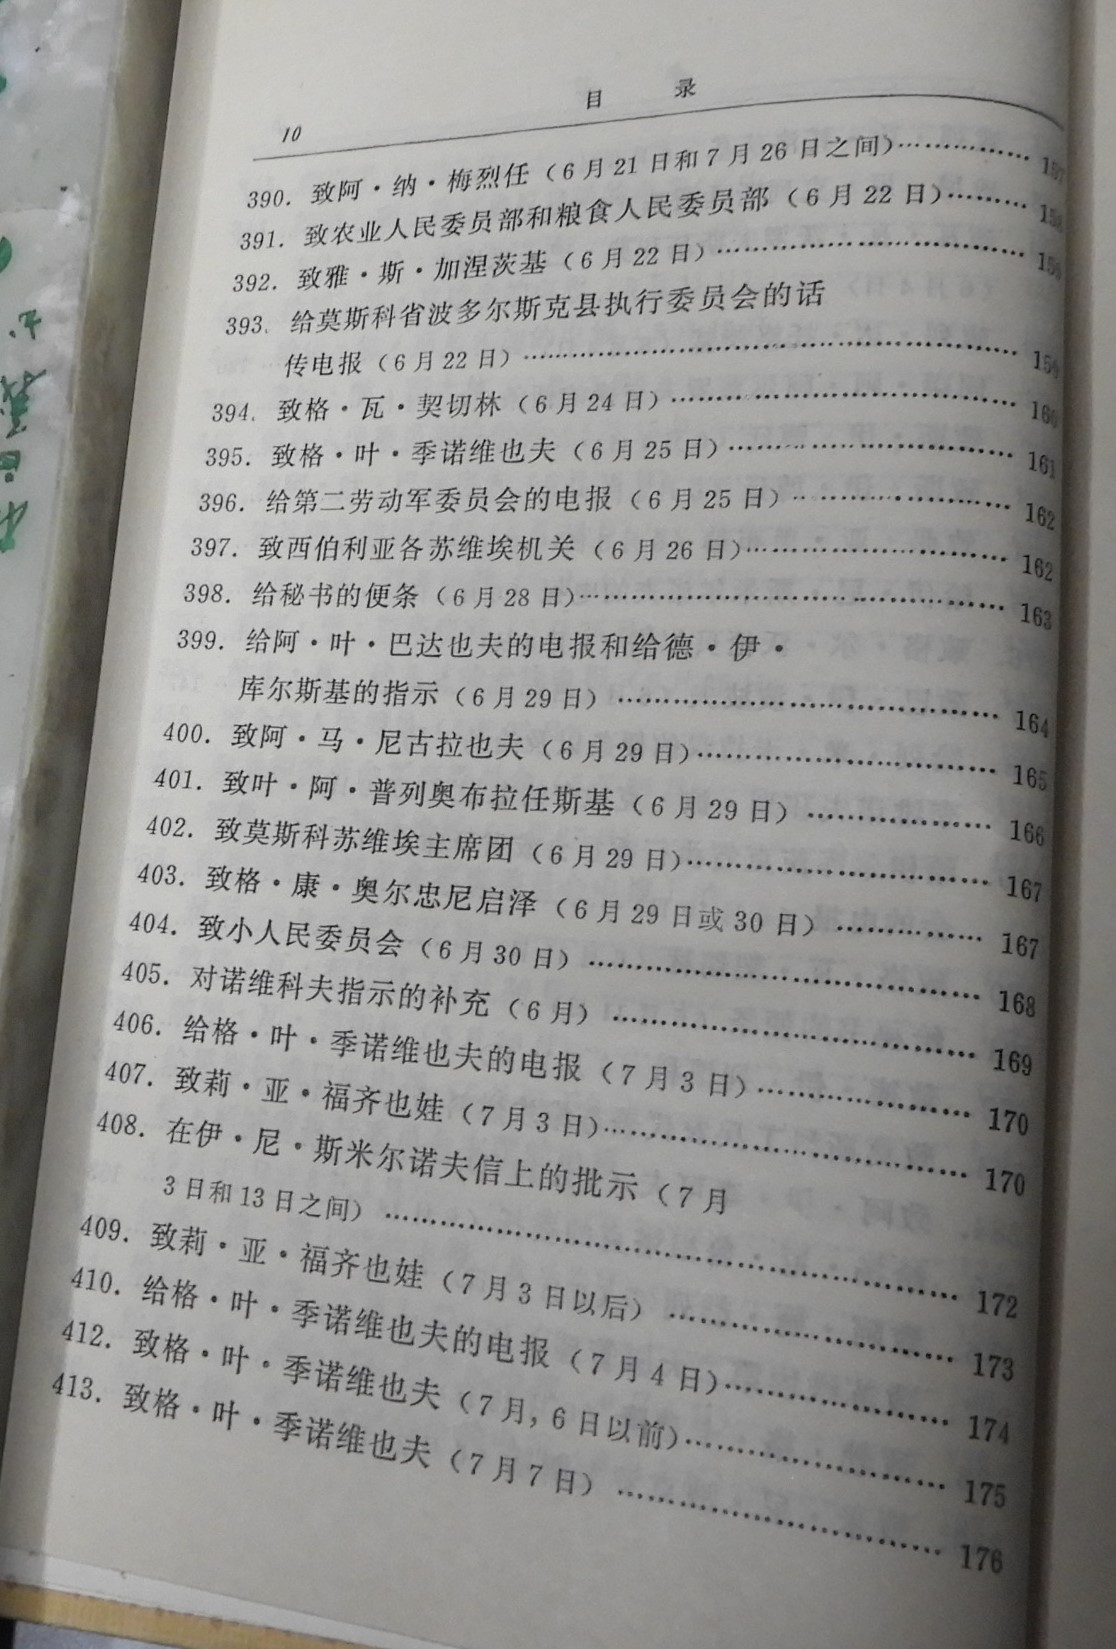 目 录
10
390. 致阿·纳·梅烈任（6月21日和7月26日之间）…………
391. 致农业人民委员部和粮食人民委员部（6月22日）………
392. 致雅·斯·加涅茨基（6月22日）……………………
393. 给莫斯科省波多尔斯克县执行委员会的话
传电报（6月22日）…………………………………
394. 致格·瓦·契切林（6月24日）……………………… 160
395. 致格·叶·季诺维也夫（6月25日）………………… 161
396. 给第二劳动军委员会的电报（6月25日）…………… 162
397. 致西伯利亚各苏维埃机关（6月26日）……………… 162
398. 给秘书的便条（6月28日）…………………………… 163
399. 给阿·叶·巴达也夫的电报和给德·伊·
库尔斯基的指示（6月29日）………………………… 164
400. 致阿·马·尼古拉也夫（6月29日）………………… 165
401. 致叶·阿·普列奥布拉任斯基（6月29日）………… 166
402. 致莫斯科苏维埃主席团（6月29日）………………… 167
403. 致格·康·奥尔忠尼启泽（6月29日或30日）……… 167
404. 致小人民委员会（6月30日）………………………… 168
405. 对诺维科夫指示的补充（6月）……………………… 169
406. 给格·叶·季诺维也夫的电报（7月3日）…………… 170
407. 致莉·亚·福齐也娃（7月3日）……………………… 170
408. 在伊·尼·斯米尔诺夫信上的批示（7月
3日和13日之间）……………………………………… 172
409. 致莉·亚·福齐也娃（7月3日以后）………………… 173
410. 给格·叶·季诺维也夫的电报（7月4日）…………… 174
412. 致格·叶·季诺维也夫（7月，6日以前）…………… 175
413. 致格·叶·季诺维也夫（7月7日）…………………… 176